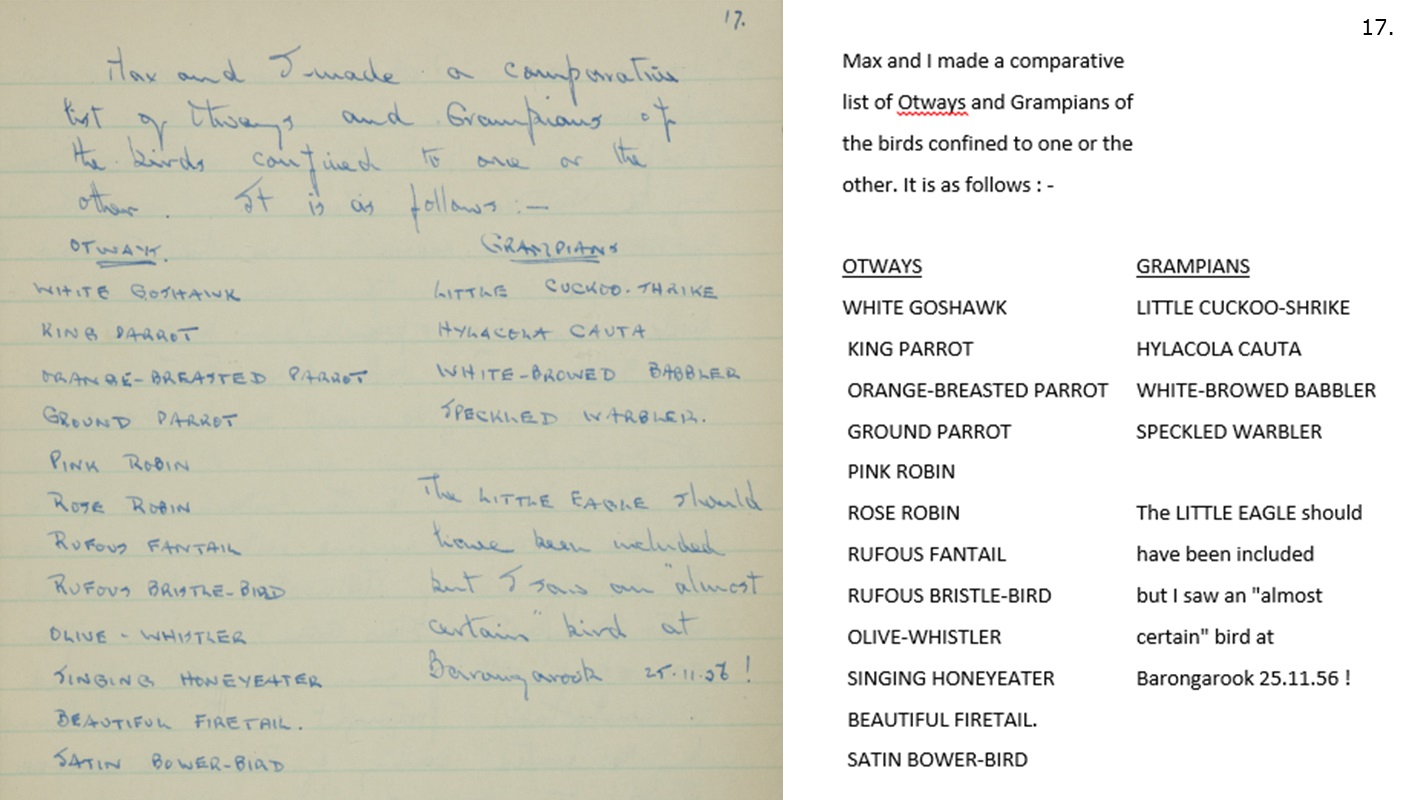 17.
Max and I made a comparative
list of Otways and Grampians of
the birds confined to one or the
other. It is as follows :-
OTWAYS.
WHITE GOSHAWK
KING PARROT
ORANGE-BREASTED PARROT
GROUND PARROT
PINK ROBIN
ROSE ROBIN
RUFOUS FANTAIL
RUFOUS BRISTLE-BIRD
OLIVE - WHISTLER
SINGING HONEYEATER
BEAUTIFUL FIRETAIL.
SATIN BOWER-BIRD
GRAMPIANS
LITTLE CUCKOO-SHRIKE
HYLACOLA CAUTA
WHITE-BROWED BABBLER
SPECKLED WARBLER.
The LITTLE EAGLE should
have been included
but I saw an "almost
certain" bird at
Barongarook 25.11.56 !
17.
Max and I made a comparative
list of Otways and Grampians of
the birds confined to one or the
other. It is as follows : -
OTWAYS
WHITE GOSHAWK
KING PARROT
ORANGE-BREASTED PARROT
GROUND PARROT
PINK ROBIN
ROSE ROBIN
RUFOUS FANTAIL
RUFOUS BRISTLE-BIRD
OLIVE-WHISTLER
SINGING HONEYEATER
BEAUTIFUL FIRETAIL.
SATIN BOWER-BIRD
GRAMPIANS
LITTLE CUCKOO-SHRIKE
HYLACOLA CAUTA
WHITE-BROWED BABBLER
SPECKLED WARBLER
The LITTLE EAGLE should
have been included
but I saw an "almost
certain" bird at
Barongarook 25.11.56 !